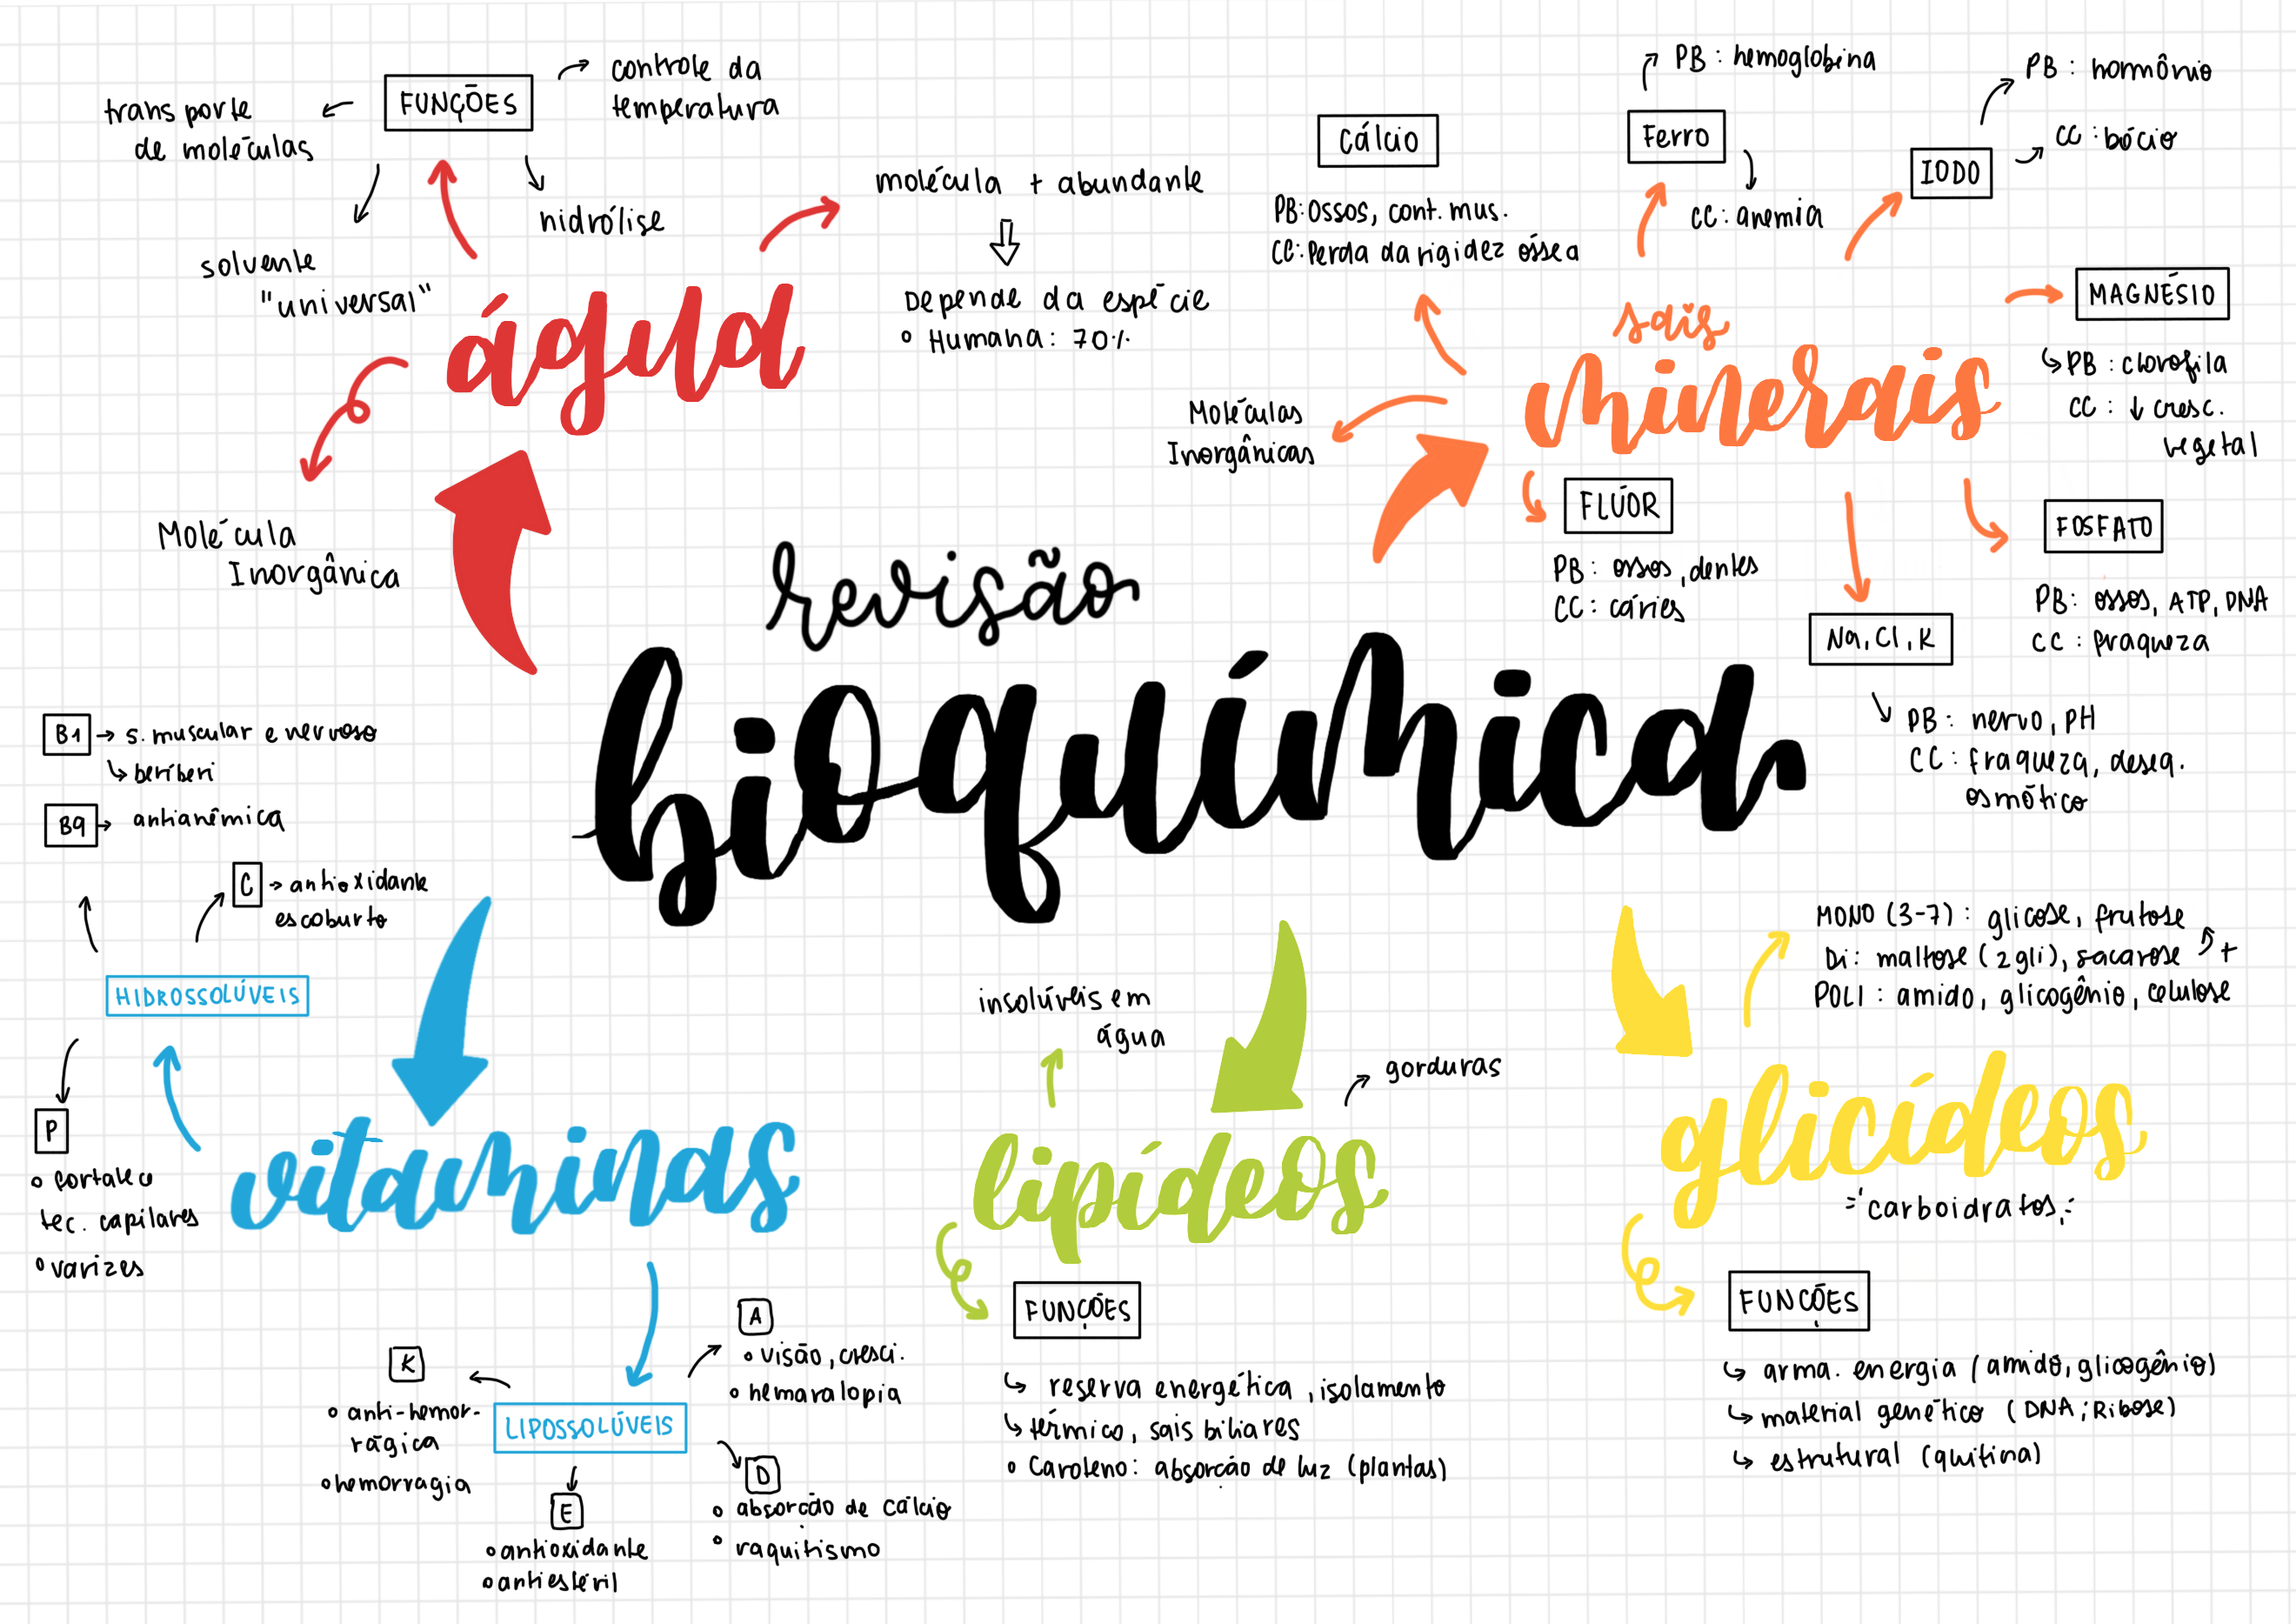 FUNÇÕES
controle da
temperatura
transporte
de moléculas
solvente
"universal"
hidrólise
molécula + abundante
Depende da espécie
• Humana: 70%
água
Molécula
Inorgânica
Cálcio
PB: Ossos, cont. mus.
CC: Perda da rigidez óssea
Ferro
PB: hemoglobina
CC: anemia
IODO
PB: hormônio
CC: bócio
MAGNÉSIO
PB: clorofila
CC: ↓ cresc.
vegetal
sais
minerais
Moléculas
Inorgânicas
FLÚOR
PB: ossos, dentes
CC: cáries
FOSFATO
PB: ossos, ATP, DNA
CC: fraqueza
Na, Cl, K
PB: nervo, PH
CC: fraqueza, deseq.
osmótico
revisão
bioquímica
B1 → s. muscular e nervoso
↳ beriberi
B9 → antianêmica
C → antioxidante
escoburto
HIDROSSOLÚVEIS
P
• fortalece
tec. capilares
• varizes
vitaminas
LIPOSSOLÚVEIS
A
• visão, cresci.
• hemaralopia
K
• anti-hemor-
rágica
• hemorragia
E
• antioxidante
• antiestéril
D
• absorção de cálcio
• raquitismo
insolúveis em
água
gorduras
lipídeos
FUNÇÕES
↳ reserva energética, isolamento
↳ térmico, sais biliares
• Caroteno: absorção de luz (plantas)
MONO (3-7): glicose, frutose
Di: maltose (2gli), sacarose +
POLI: amido, glicogênio, celulose
glicídeos
carboidratos
FUNÇÕES
↳ arma. energia (amido, glicogênio)
↳ material genético (DNA; Ribose)
↳ estrutural (quitina)